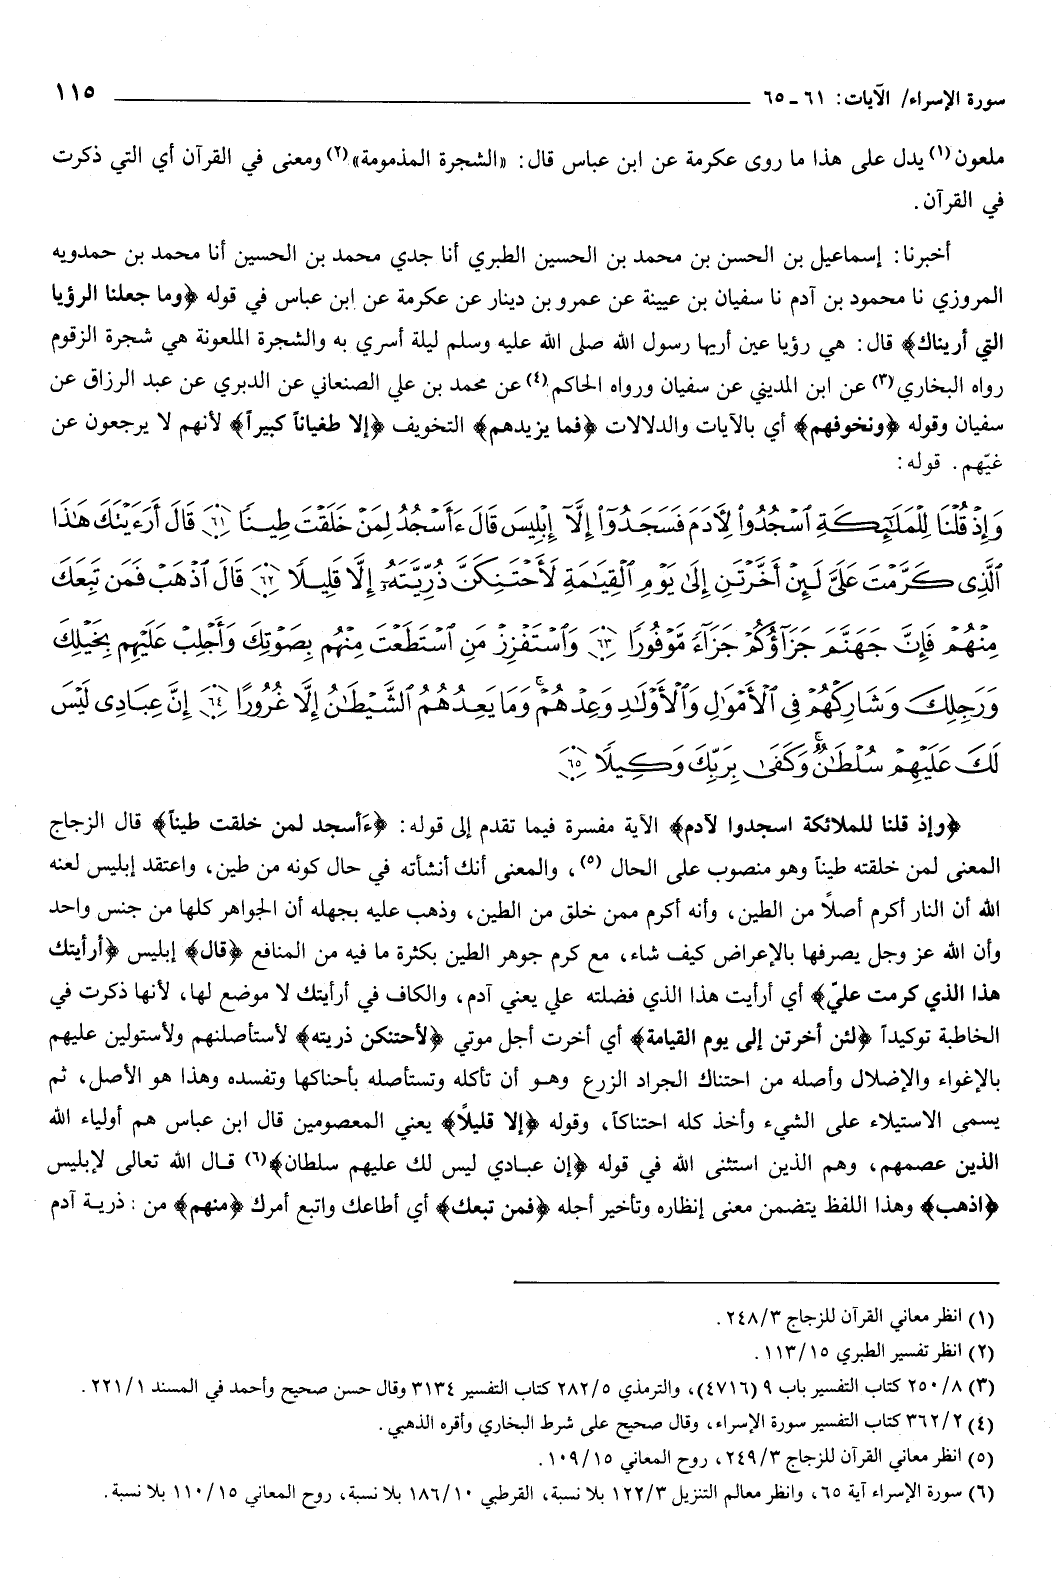 سورة الإسراء/ الآيات: ٦١ - ٦٥ ١١٥
ملعون(١) يدل على هذا ما روى عكرمة عن ابن عباس قال: «الشجرة المذمومة»(٢) ومعنى في القرآن أي التي ذكرت
في القرآن.
أخبرنا: إسماعيل بن الحسن بن محمد بن الحسين الطبري أنا جدي محمد بن الحسين أنا محمد بن حمدويه
المروزي نا محمود بن آدم نا سفيان بن عيينة عن عمرو بن دينار عن عكرمة عن ابن عباس في قوله ﴿وما جعلنا الرؤيا
التي أريناك﴾ قال: هي رؤيا عين أريها رسول الله صلى الله عليه وسلم ليلة أسري به والشجرة الملعونة هي شجرة الزقوم
رواه البخاري(٣) عن ابن المديني عن سفيان ورواه الحاكم(٤) عن محمد بن علي الصنعاني عن الدبري عن عبد الرزاق عن
سفيان وقوله ﴿ونخوفهم﴾ أي بالآيات والدلالات ﴿فما يزيدهم﴾ التخويف ﴿إلا طغياناً كبيراً﴾ لأنهم لا يرجعون عن
غيّهم. قوله:
وَإِذْ قُلْنَا لِلْمَلَٰٓئِكَةِ ٱسْجُدُوا۟ لِءَادَمَ فَسَجَدُوٓا۟ إِلَّآ إِبْلِيسَ قَالَ ءَأَسْجُدُ لِمَنْ خَلَقْتَ طِينًا ٦١ قَالَ أَرَءَيْتَكَ هَٰذَا
ٱلَّذِى كَرَّمْتَ عَلَىَّ لَئِنْ أَخَّرْتَنِ إِلَىٰ يَوْمِ ٱلْقِيَٰمَةِ لَأَحْتَنِكَنَّ ذُرِّيَّتَهُۥٓ إِلَّا قَلِيلًا ٦٢ قَالَ ٱذْهَبْ فَمَن تَبِعَكَ
مِنْهُمْ فَإِنَّ جَهَنَّمَ جَزَآؤُكُمْ جَزَآءً مَّوْفُورًا ٦٣ وَٱسْتَفْزِزْ مَنِ ٱسْتَطَعْتَ مِنْهُم بِصَوْتِكَ وَأَجْلِبْ عَلَيْهِم بِخَيْلِكَ
وَرَجِلِكَ وَشَارِكْهُمْ فِى ٱلْأَمْوَٰلِ وَٱلْأَوْلَٰدِ وَعِدْهُمْ ۚ وَمَا يَعِدُهُمُ ٱلشَّيْطَٰنُ إِلَّا غُرُورًا ٦٤ إِنَّ عِبَادِى لَيْسَ
لَكَ عَلَيْهِمْ سُلْطَٰنٌ ۚ وَكَفَىٰ بِرَبِّكَ وَكِيلًا ٦٥
﴿وإذ قلنا للملائكة اسجدوا لآدم﴾ الآية مفسرة فيما تقدم إلى قوله: ﴿ءَأسجد لمن خلقت طيناً﴾ قال الزجاج
المعنى لمن خلقته طيناً وهو منصوب على الحال (٥)، والمعنى أنك أنشأته في حال كونه من طين، واعتقد إبليس لعنه
الله أن النار أكرم أصلاً من الطين، وأنه أكرم ممن خلق من الطين، وذهب عليه بجهله أن الجواهر كلها من جنس واحد
وأن الله عز وجل يصرفها بالإعراض كيف شاء، مع كرم جوهر الطين بكثرة ما فيه من المنافع ﴿قال﴾ إبليس ﴿أرأيتك
هذا الذي كرمت عليّ﴾ أي أرأيت هذا الذي فضلته علي يعني آدم، والكاف في أرأيتك لا موضع لها، لأنها ذكرت في
الخاطبة توكيداً ﴿لئن أخرتن إلى يوم القيامة﴾ أي أخرت أجل موتي ﴿لأحتنكن ذريته﴾ لأستأصلنهم ولأستولين عليهم
بالإغواء والإضلال وأصله من احتناك الجراد الزرع وهو أن تأكله وتستأصله بأحناكها وتفسده وهذا هو الأصل، ثم
يسمى الاستيلاء على الشيء وأخذ كله احتناكاً، وقوله ﴿إلا قليلاً﴾ يعني المعصومين قال ابن عباس هم أولياء الله
الذين عصمهم، وهم الذين استثنى الله في قوله ﴿إن عبادي ليس لك عليهم سلطان﴾(٦) قال الله تعالى لإبليس
﴿اذهب﴾ وهذا اللفظ يتضمن معنى إنظاره وتأخير أجله ﴿فمن تبعك﴾ أي أطاعك واتبع أمرك ﴿منهم﴾ من : ذرية آدم
(١) انظر معاني القرآن للزجاج ٢٤٨/٣ .
(٢) انظر تفسير الطبري ١١٣/١٥ .
(٣) ٢٥٠/٨ كتاب التفسير باب ٩ (٤٧١٦)، والترمذي ٢٨٢/٥ كتاب التفسير ٣١٣٤ وقال حسن صحيح وأحمد في المسند ٢٢١/١ .
(٤) ٣٦٢/٢ كتاب التفسير سورة الإسراء، وقال صحيح على شرط البخاري وأقره الذهبي.
(٥) انظر معاني القرآن للزجاج ٢٤٩/٣، روح المعاني ١٠٩/١٥ .
(٦) سورة الإسراء آية ٦٥، وانظر معالم التنزيل ١٢٢/٣ بلا نسبة، القرطبي ١٨٦/١٠ بلا نسبة، روح المعاني ١١٠/١٥ بلا نسبة.